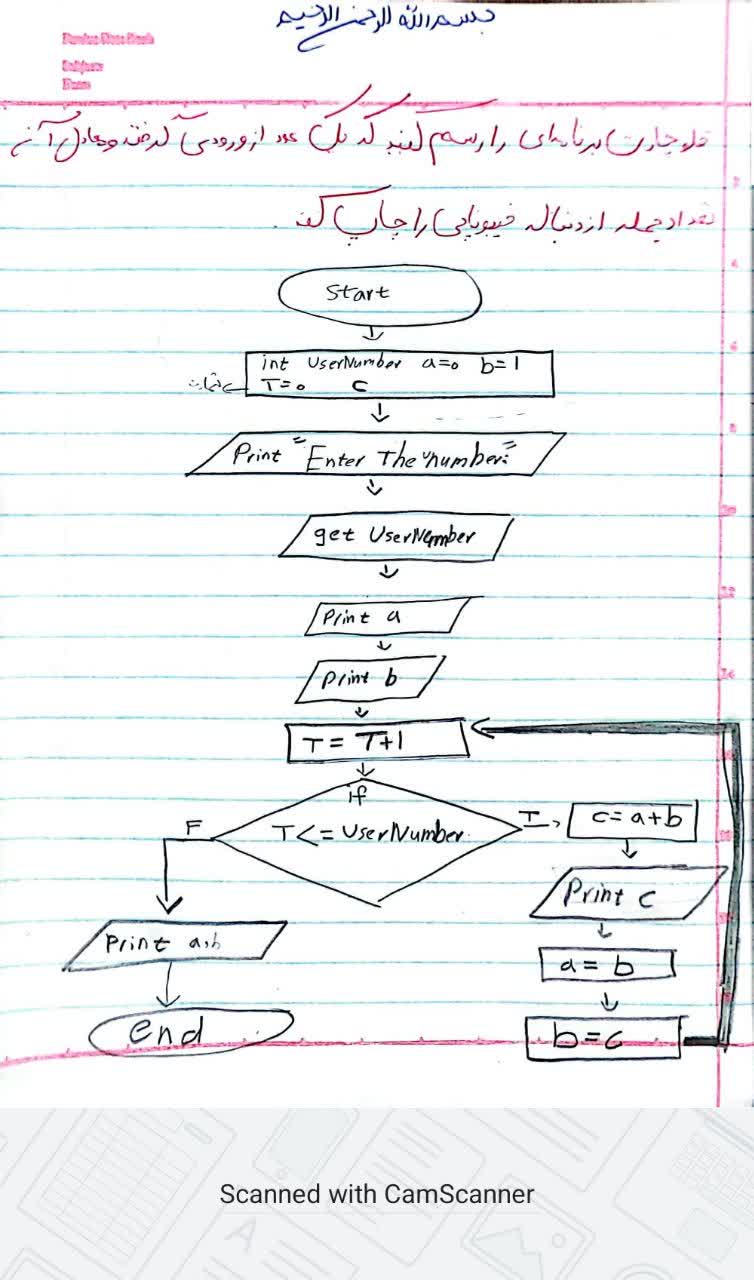 بسم الله الرحمن الرحیم
فلوچارت برنامه‌ای را رسم کنید که یک عدد از ورودی گرفته و معادل آن
تعداد جمله از دنباله فیبوناچی را چاپ کند.
Start
int UserNumber a=0 b=1
T=0 C
Print "Enter The number:"
get UserNumber
Print a
Print b
T = T+1
if
T <= UserNumber
F
T
C = a+b
Print C
a = b
b = c
Print a,b
end
Scanned with CamScanner